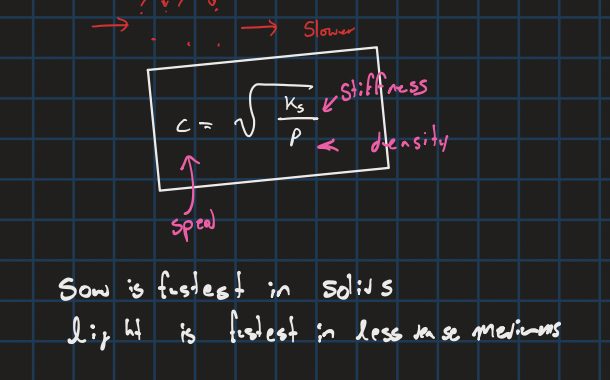 → → Slower
c = √(Ks/ρ) ← stiffness
← density
speed
Soun is fastest in solids
light is fastest in less dense mediums